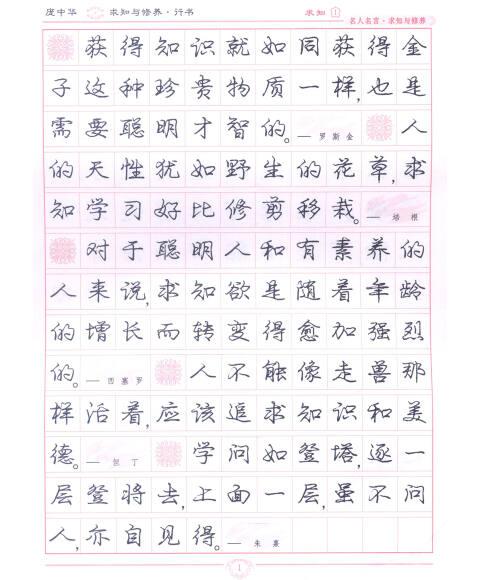 庞中华 求知与修养·行书 求知 1
名人名言·求知与修养
获得知识就如同获得金
子这种珍贵物质一样,也是
需要聪明才智的。—罗斯金 人
的天性犹如野生的花草,求
知学习好比修剪移栽。—培根
对于聪明人和有素养的
人来说,求知欲是随着年龄
的增长而转变得愈加强烈
的。—西塞罗 人不能像走兽那
样活着,应该追求知识和美
德。—但丁 学问如登塔,逐一
层登将去,上面一层,虽不问
人,亦自见得。—朱熹
1